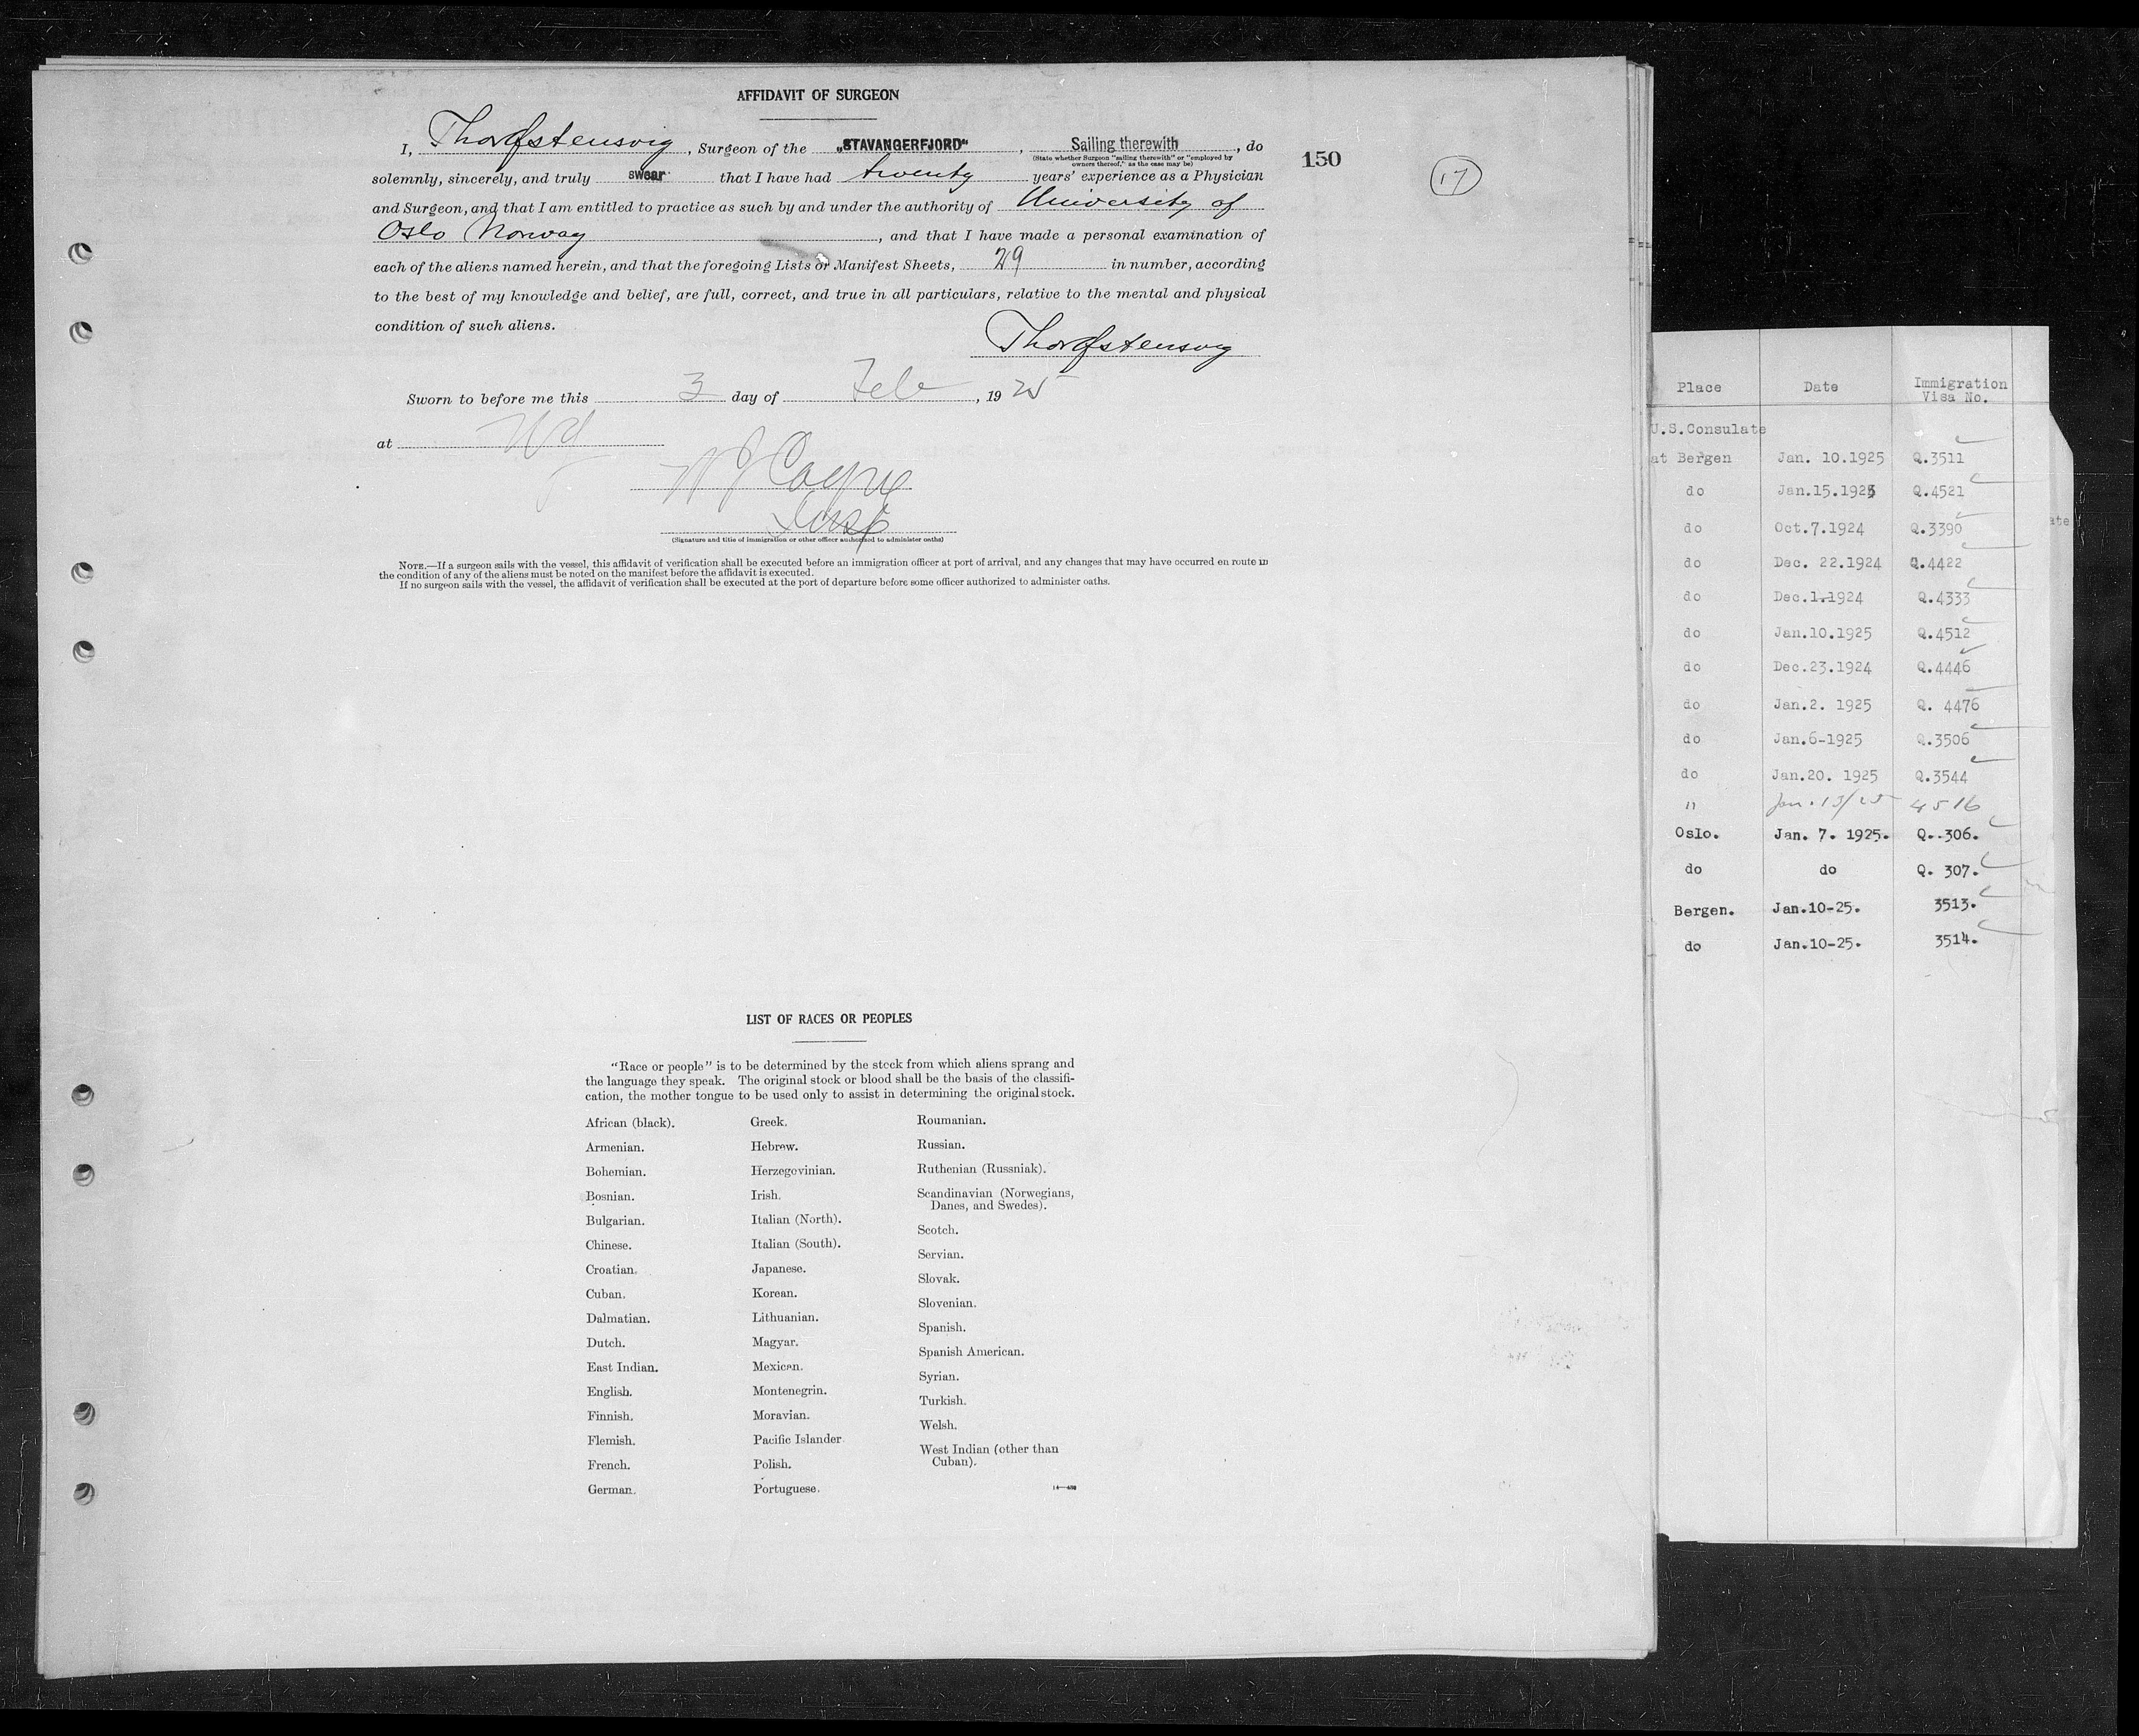 AFFIDAVIT OF SURGEON
I, , Surgeon of the „STAVANGERFJORD“, Sailing therewith, do
(State whether Surgeon "sailing therewith" or "employed by
owners thereof," as the case may be)
150
17
solemnly, sincerely, and truly swear that I have had twenty years' experience as a Physician
and Surgeon, and that I am entitled to practice as such by and under the authority of University of
Oslo Norway, and that I have made a personal examination of
each of the aliens named herein, and that the foregoing Lists or Manifest Sheets, 29 in number, according
to the best of my knowledge and belief, are full, correct, and true in all particulars, relative to the mental and physical
condition of such aliens.
Sworn to before me this 3 day of Feb, 1925
at NY
(Signature and title of immigration or other officer authorized to administer oaths)
NOTE.—If a surgeon sails with the vessel, this affidavit of verification shall be executed before an immigration officer at port of arrival, and any changes that may have occurred en route in
the condition of any of the aliens must be noted on the manifest before the affidavit is executed.
If no surgeon sails with the vessel, the affidavit of verification shall be executed at the port of departure before some officer authorized to administer oaths.
LIST OF RACES OR PEOPLES
"Race or people" is to be determined by the stock from which aliens sprang and
the language they speak. The original stock or blood shall be the basis of the classifi-
cation, the mother tongue to be used only to assist in determining the original stock.
African (black).
Armenian.
Bohemian.
Bosnian.
Bulgarian.
Chinese.
Croatian.
Cuban.
Dalmatian.
Dutch.
East Indian.
English.
Finnish.
Flemish.
French.
German.
Greek.
Hebrew.
Herzegovinian.
Irish.
Italian (North).
Italian (South).
Japanese.
Korean.
Lithuanian.
Magyar.
Mexican.
Montenegrin.
Moravian.
Pacific Islander
Polish.
Portuguese.
Roumanian.
Russian.
Ruthenian (Russniak).
Scandinavian (Norwegians,
Danes, and Swedes).
Scotch.
Servian.
Slovak.
Slovenian.
Spanish.
Spanish American.
Syrian.
Turkish.
Welsh.
West Indian (other than
Cuban).
Place Date Immigration
Visa No.
U.S.Consulate
at Bergen Jan. 10.1925 Q.3511
do Jan.15.1925 Q.4521
do Oct.7.1924 Q.3390
do Dec. 22.1924 Q.4422
do Dec.1.1924 Q.4333
do Jan.10.1925 Q.4512
do Dec.23.1924 Q.4446
do Jan.2. 1925 Q. 4476
do Jan.6-1925 Q.3506
do Jan.20. 1925 Q.3544
" Jan. 13/25 4516
Oslo. Jan. 7. 1925. Q.-306.
do do Q. 307.
Bergen. Jan.10-25. 3513.
do Jan.10-25. 3514.